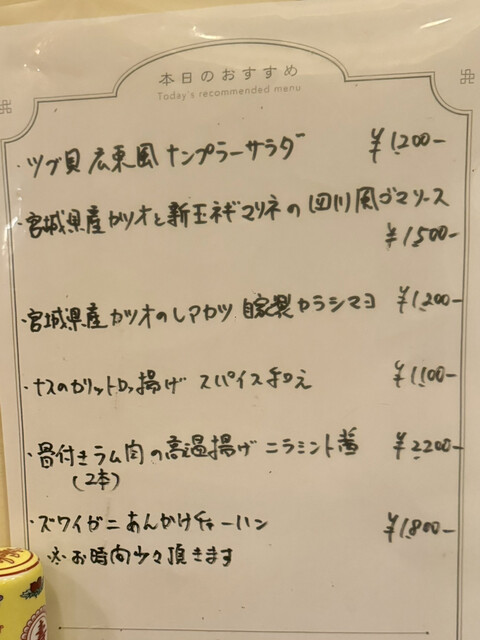 本日のおすすめ
Today's recommended menu
・ツブ貝 広東風 ナンプラーサラダ ¥1,200-
・宮城県産カツオと新玉ネギマリネの四川風ゴマソース
¥1,500-
・宮城県産カツオのレアカツ 自家製カラシマヨ ¥1,200-
・ナスのカリットロッ揚げ スパイス和え ¥1,100-
・骨付きラム肉の高温揚げ ニラミント醤 ¥2,200-
(2本)
・ズワイガニあんかけチャーハン ¥1,800-
※お時間少々頂きます